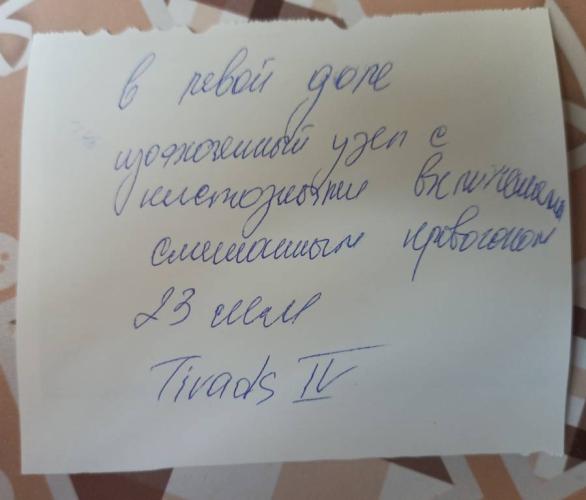 в левой доле
изоэхогенный узел с
кистозными включениями
смешанным кровотоком
23 мм
Tirads IV